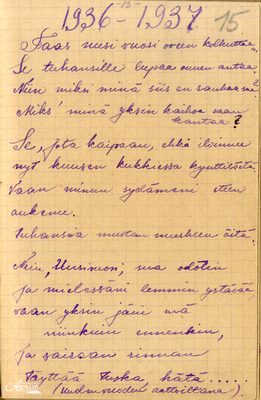 -15-
1936-1937
15
Taas uusi vuosi oveen kolkuttaa...
Se tuhansille lupaa onnen antaa
Niin miksi minä siis en rauhaa saa
Miks' minä yksin kaihoa saan
kantaa?
Se, jota kaipaan, ehkä iloinnee
nyt kuusen kukkiessa kynttilöitä
Vaan minun sydämeni eteen
aukenee.
tuhansia mustan murheen öitä.
Niin, Uusivuosi, sua odotin
ja mielessäni lemmin ystävää
vaan yksin jäin mä
niinkuin ennenkin,
Ja sairaan rinnan
Täyttää tuska hätä.....
(Uudenvuoden aattoiltana).